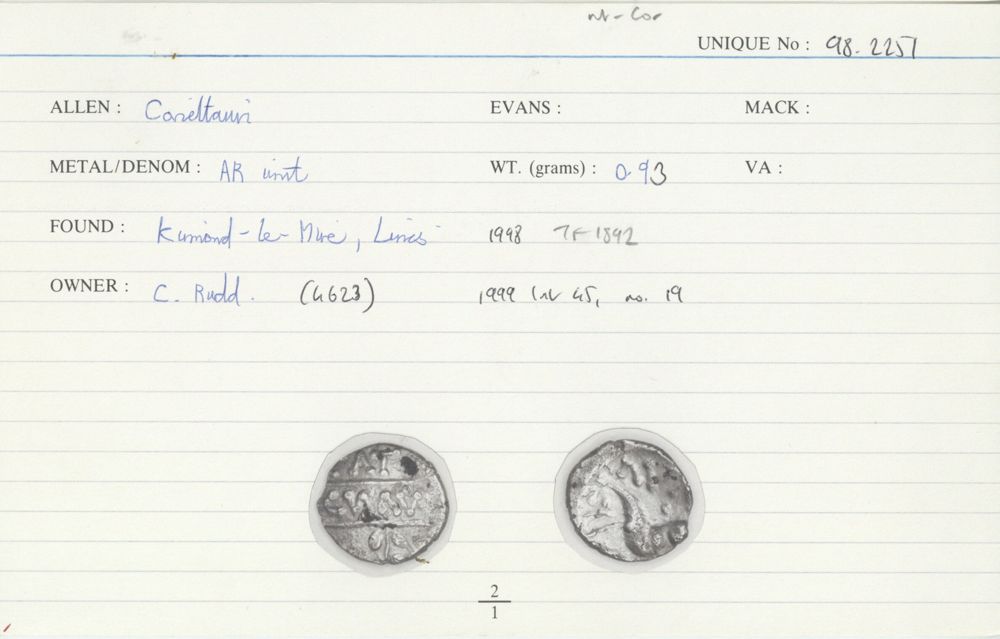 UNIQUE No : 98.2251
ALLEN : Corieltauvi EVANS : MACK :
METAL/DENOM : AR unit WT. (grams) : 0.93 VA :
FOUND : Kirmond-le-Mire, Lincs 1998 TF 1892
OWNER : C. Rudd. (4623) 1999 list 45, no. 19
2
1